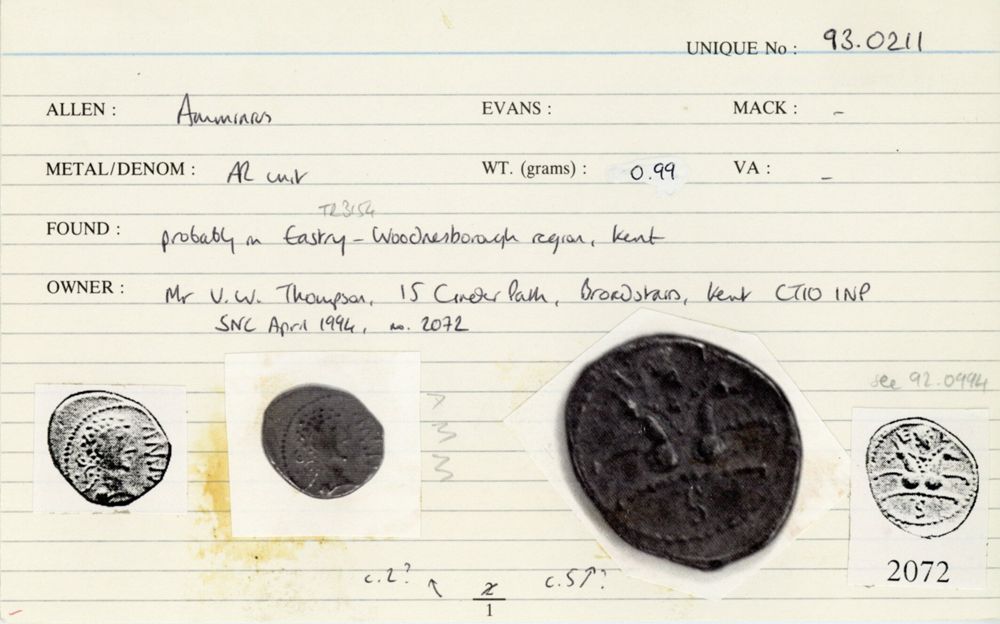 UNIQUE No : 93.0211
ALLEN : Amminius EVANS : MACK : -
METAL/DENOM : AR unit WT. (grams) : 0.99 VA : -
TR3154
FOUND : probably in Eastry - Woodnesborough region, Kent
OWNER : Mr V.W. Thompson, 15 Cinder Path, Broadstairs, Kent CT10 1NP
SNC April 1994, no. 2072
see 92.0994
S
S
2072
c.2? ↑ 2/1 c.5↑?